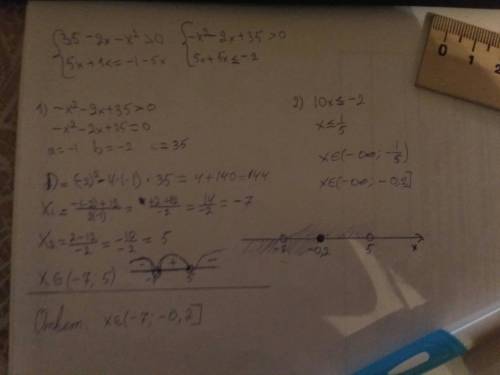 35 - 2x - x² > 0   -x² - 2x + 35 > 0
5x + 1 ≤ -1 - 5x   5x + 5x ≤ -2
1) -x² - 2x + 35 > 0
-x² - 2x + 35 = 0
a = -1 b = -2 c = 35
D = (-2)² - 4·(-1)·35 = 4 + 140 = 144
x₁ = -(-2)+12 / 2(-1) = +2+12 / -2 = 14 / -2 = -7
x₂ = 2-12 / -2 = -10 / -2 = 5
x∈(-7; 5) - + - -7 5
2) 10x ≤ -2
x ≤ 1/5
x∈(-∞; -1/5)
x∈(-∞; -0,2]
-7 -0,2 5 x
Ответ: x∈(-7; -0,2]
0 1 2